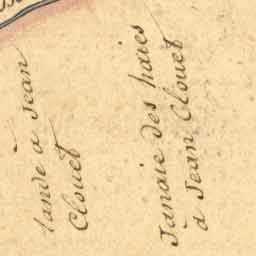 lande à Jean
Clouet
Janaie des haies
à Jean Clouet